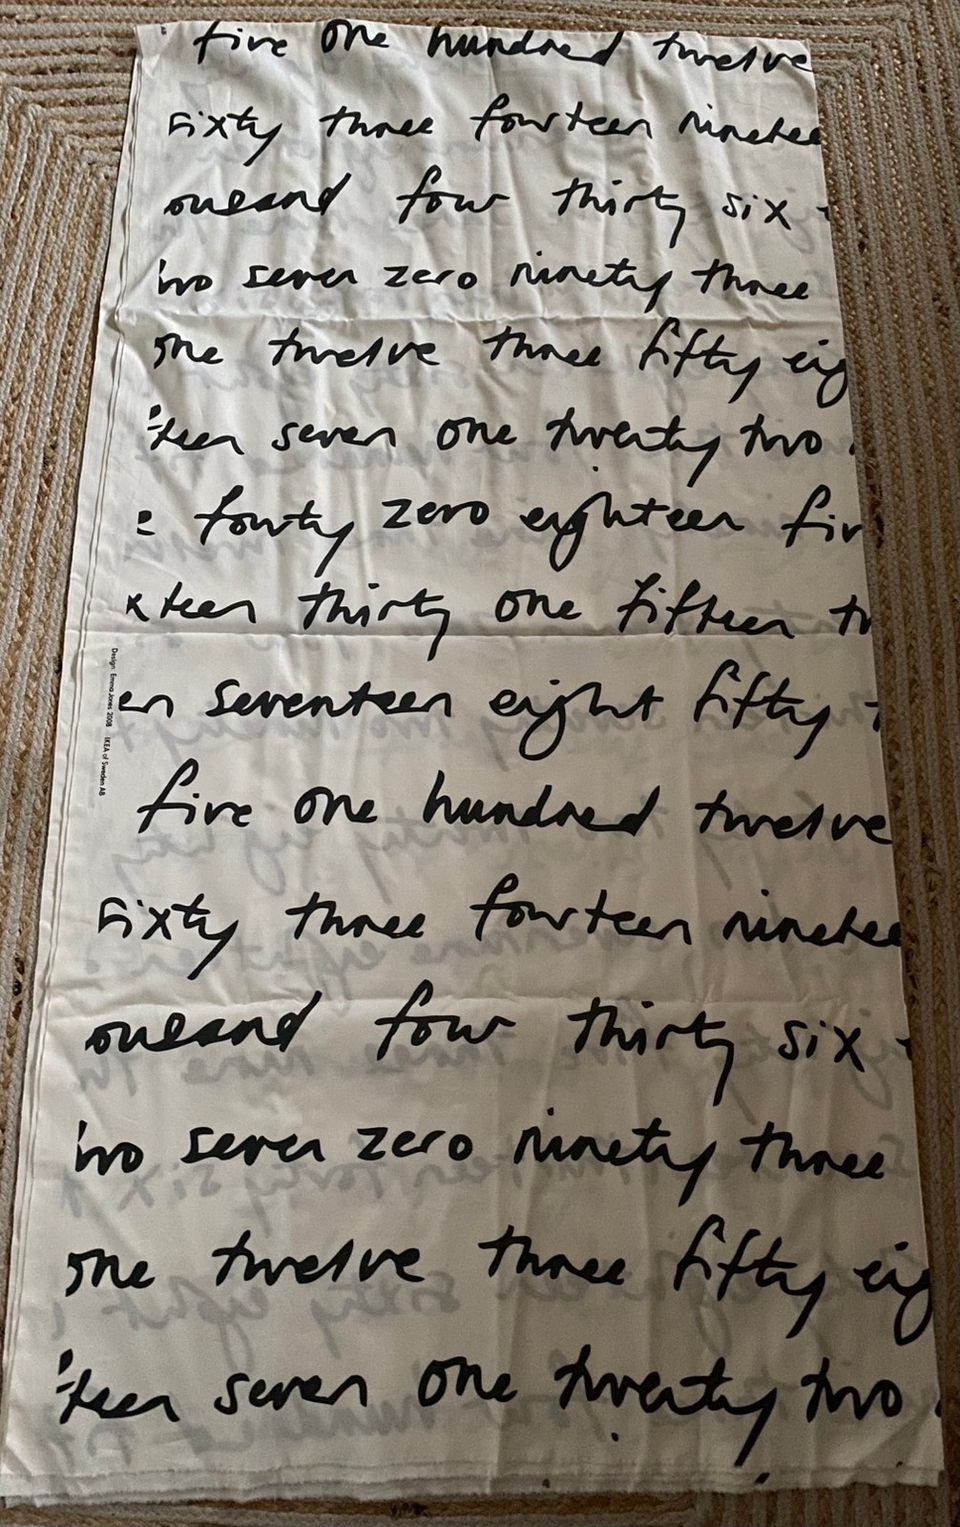 five one hundred twelve
sixty three fourteen ninetee
ousand four thirty six
two seven zero ninety three
one twelve three fifty eig
teen seven one twenty two
e fourty zero eighteen fiv
xteen thirty one fifteen tw
en seventeen eight fifty
Design: Emma Jones 2008 IKEA of Sweden AB
five one hundred twelve
sixty three fourteen ninetee
ousand four thirty six
two seven zero ninety three
one twelve three fifty eig
teen seven one twenty two